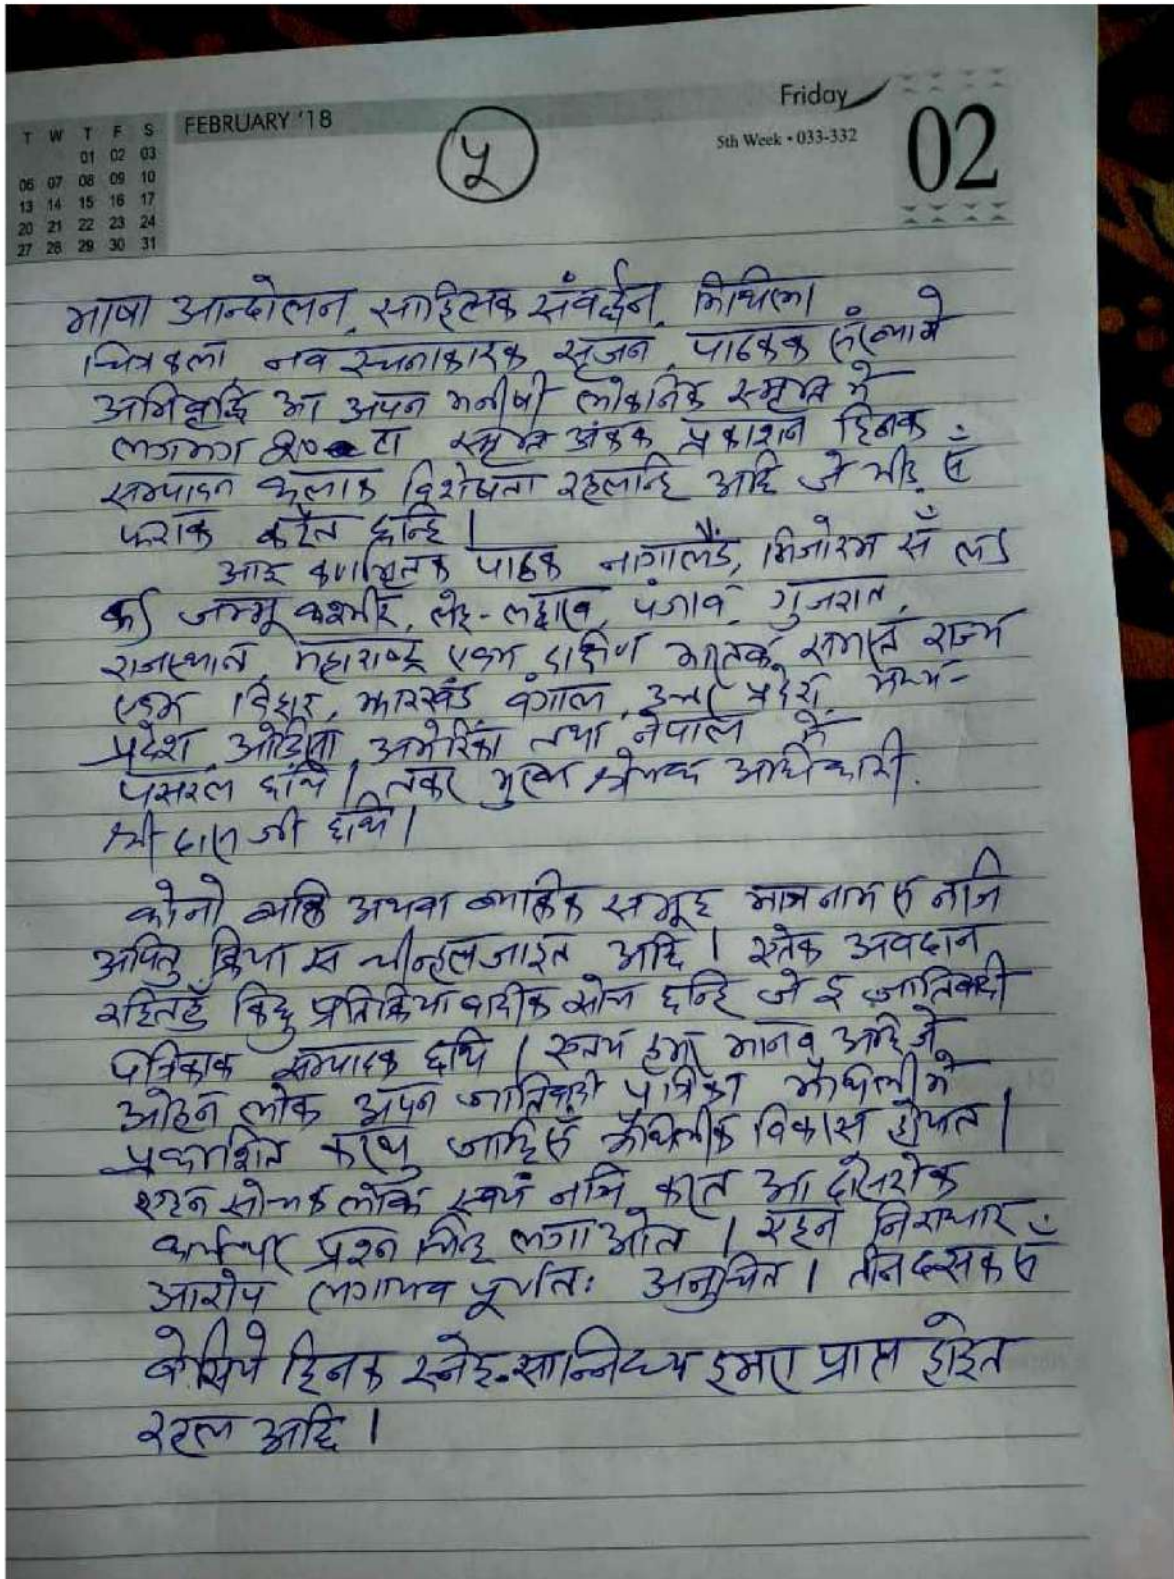 T W T F S
01 02 03
06 07 08 09 10
13 14 15 16 17
20 21 22 23 24
27 28 29 30 31
FEBRUARY '18
५
Friday
5th Week • 033-332
02
भाषा आन्दोलन, साहित्यिक संवर्द्धन, मिथिला
चित्रकला, नव रचनाकारक सृजन, पाठकक संख्यामे
अभिवृद्धि आ अपन मनीषी लोकनिक स्मृति मे
लगभग २० टा स्मृति अंकक प्रकाशन हिनक
सम्पादन कलाक विशेषता रहलन्हि अछि जे भीड़ सँ
फराक करैत छन्हि।
आइ कर्णामृतक पाठक नागालैंड, मिजोरम सँ लऽ
कऽ जम्मू कश्मीर, लेह-लद्दाख, पंजाब, गुजरात,
राजस्थान, महाराष्ट्र एवम दक्षिण भारतक समस्त राज्य
एवम बिहार, झारखंड बंगाल, उत्तर प्रदेश, मध्य-
प्रदेश, ओड़िसा, अमेरिका तथा नेपाल मे
पसरल छथि। तकर मुख्य श्रेयक अधिकारी
श्री दासजी छथि।
कोनो व्यक्ति अथवा व्यक्तिक समूह मात्र नाम सँ नञि
अपितु क्रिया स चीन्हल जाइत अछि। एतेक अवदान
रहितहुँ किछु प्रतिक्रियावादीक सोच छन्हि जे ई जातिवादी
पत्रिकाक सम्पादक छथि। हमर मानब अछि जे
ओहन लोक अपन जातिवादी पत्रिका मैथिलीमे
प्रकाशित करथु जाहिसँ मैथिलीक विकास होयत।
एहन सोचक लोक स्वयं नञि करत आ दोसरोक
कार्यपर प्रश्न चिन्ह लगाओत। एहन निराधार
आरोप लगायब पूर्णतः अनुचित। तीन दसक सँ
बेसिये हिनक स्नेह-सान्निध्य हमरा प्राप्त होइत
रहल अछि।